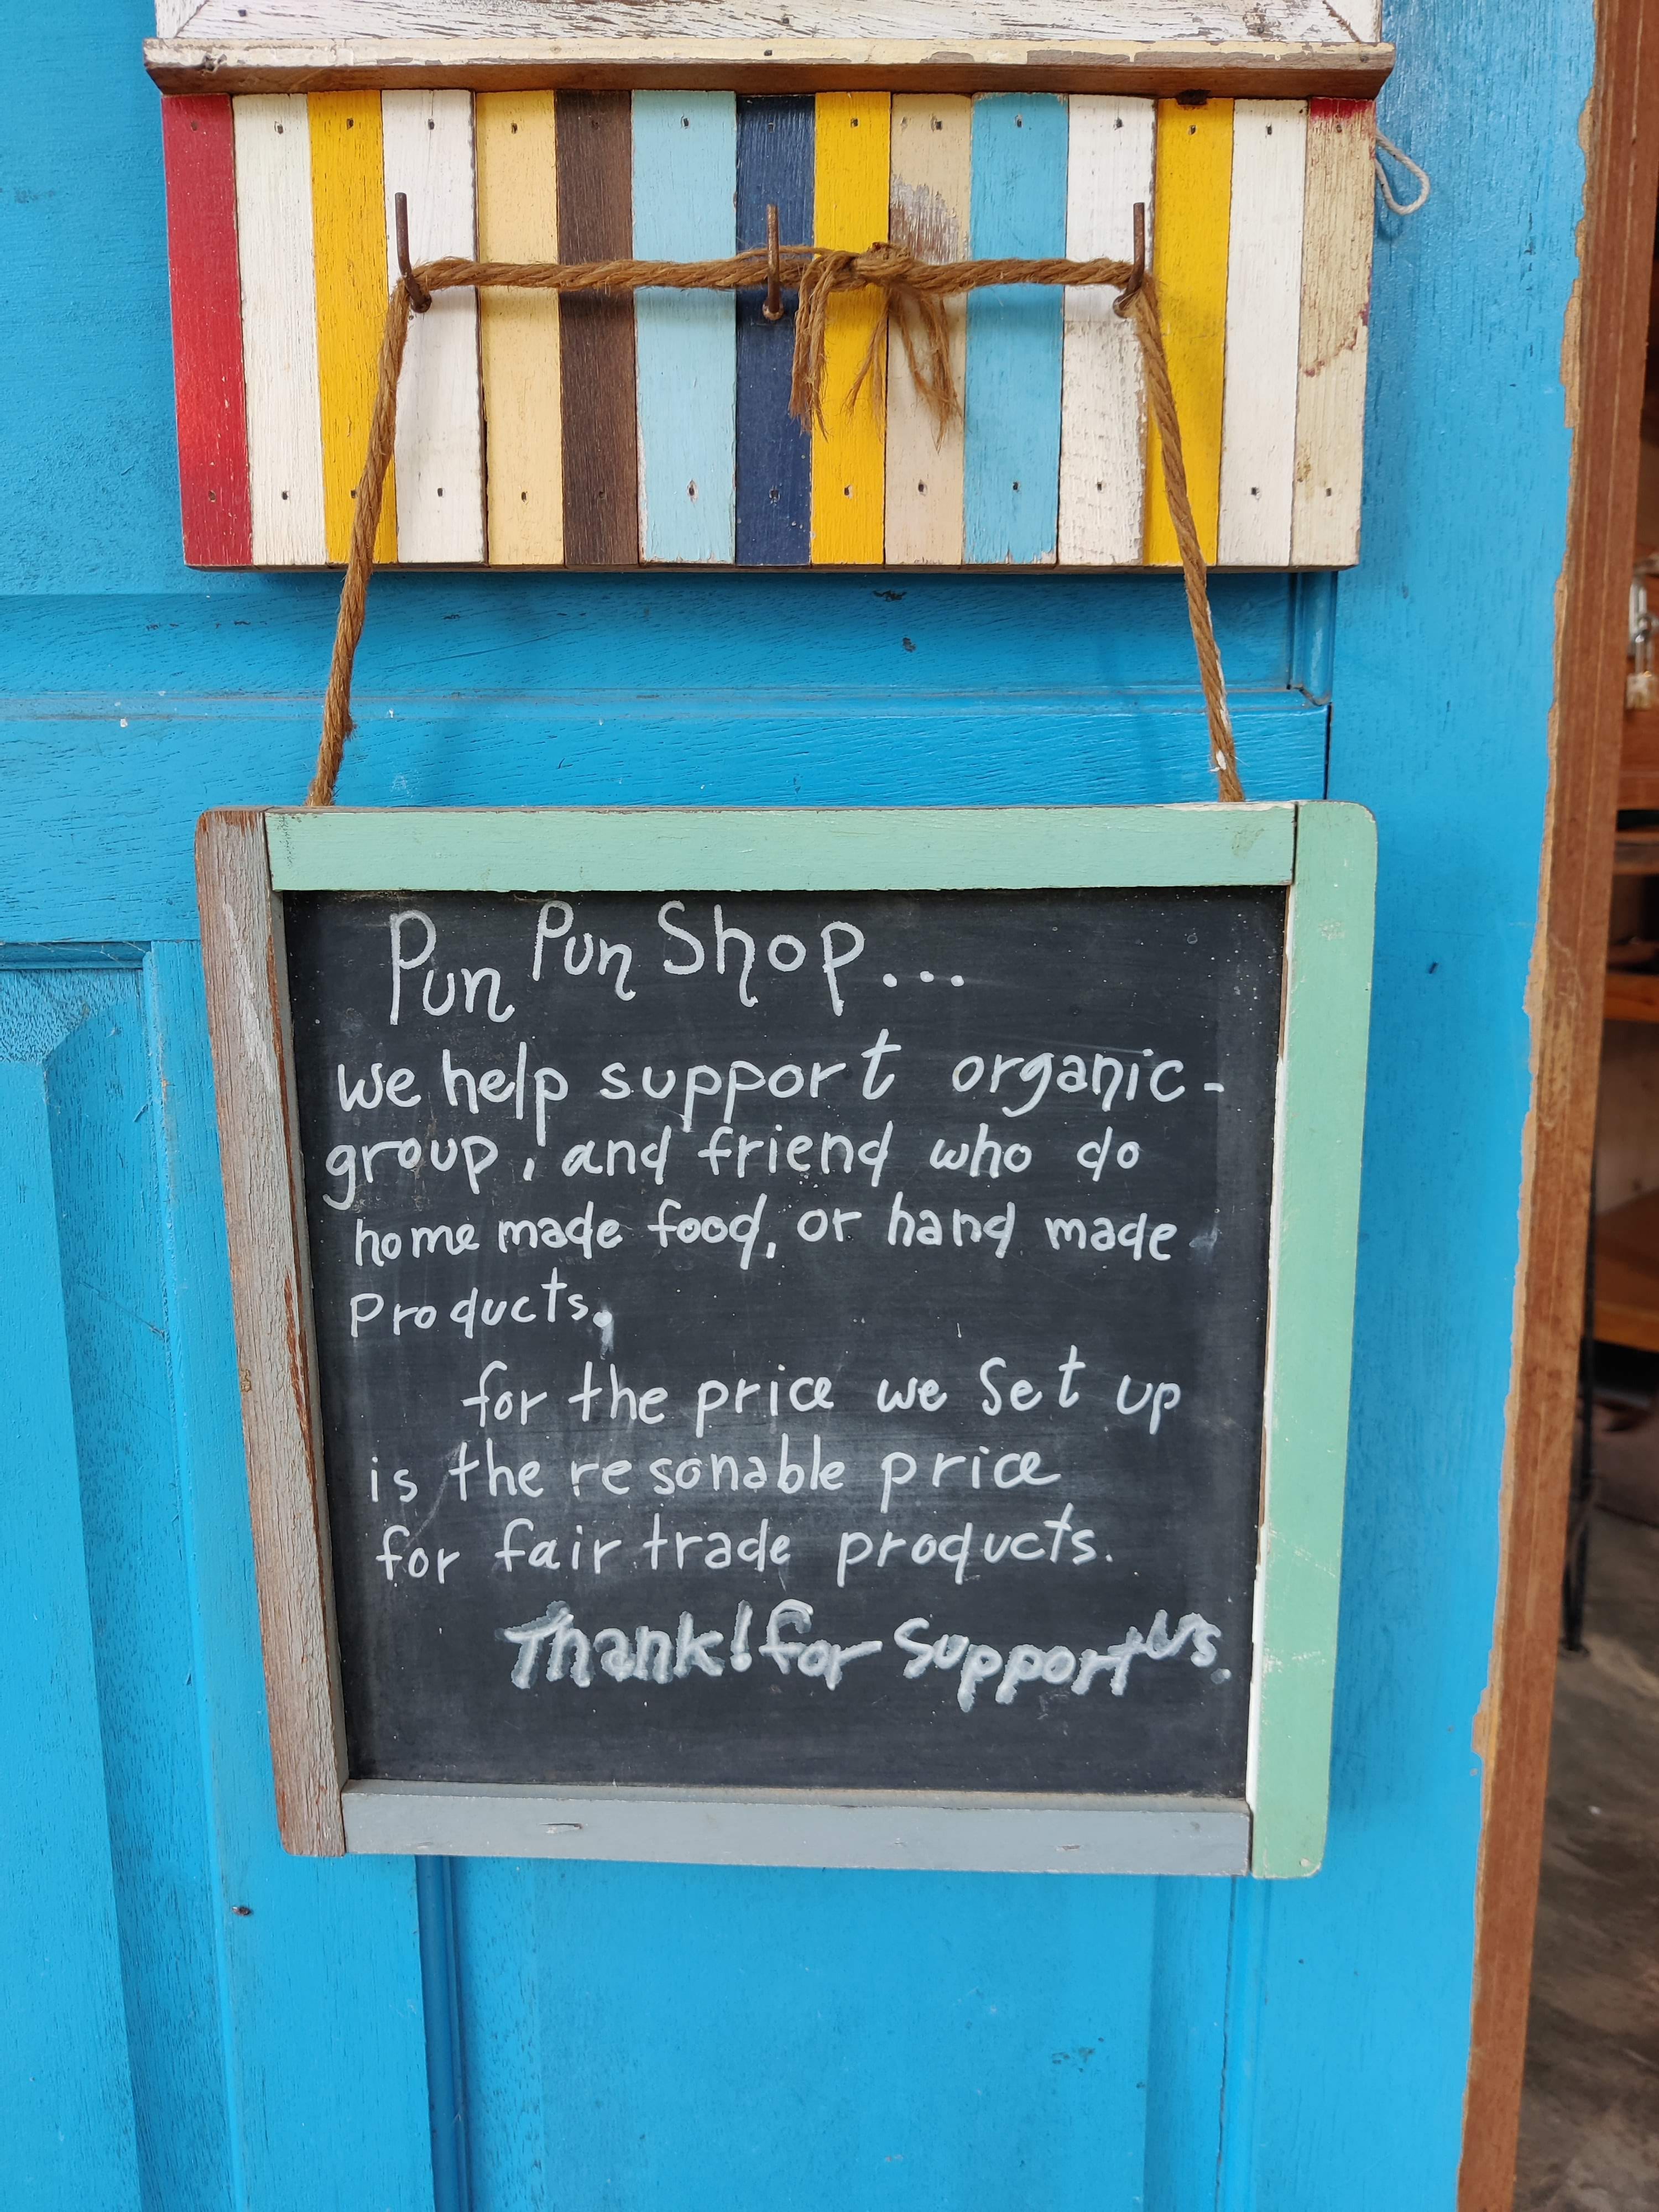 Pun Pun Shop...
we help support organic-
group, and friend who do
home made food, or hand made
products.
for the price we set up
is the resonable price
for fair trade products.
Thank! for support us.